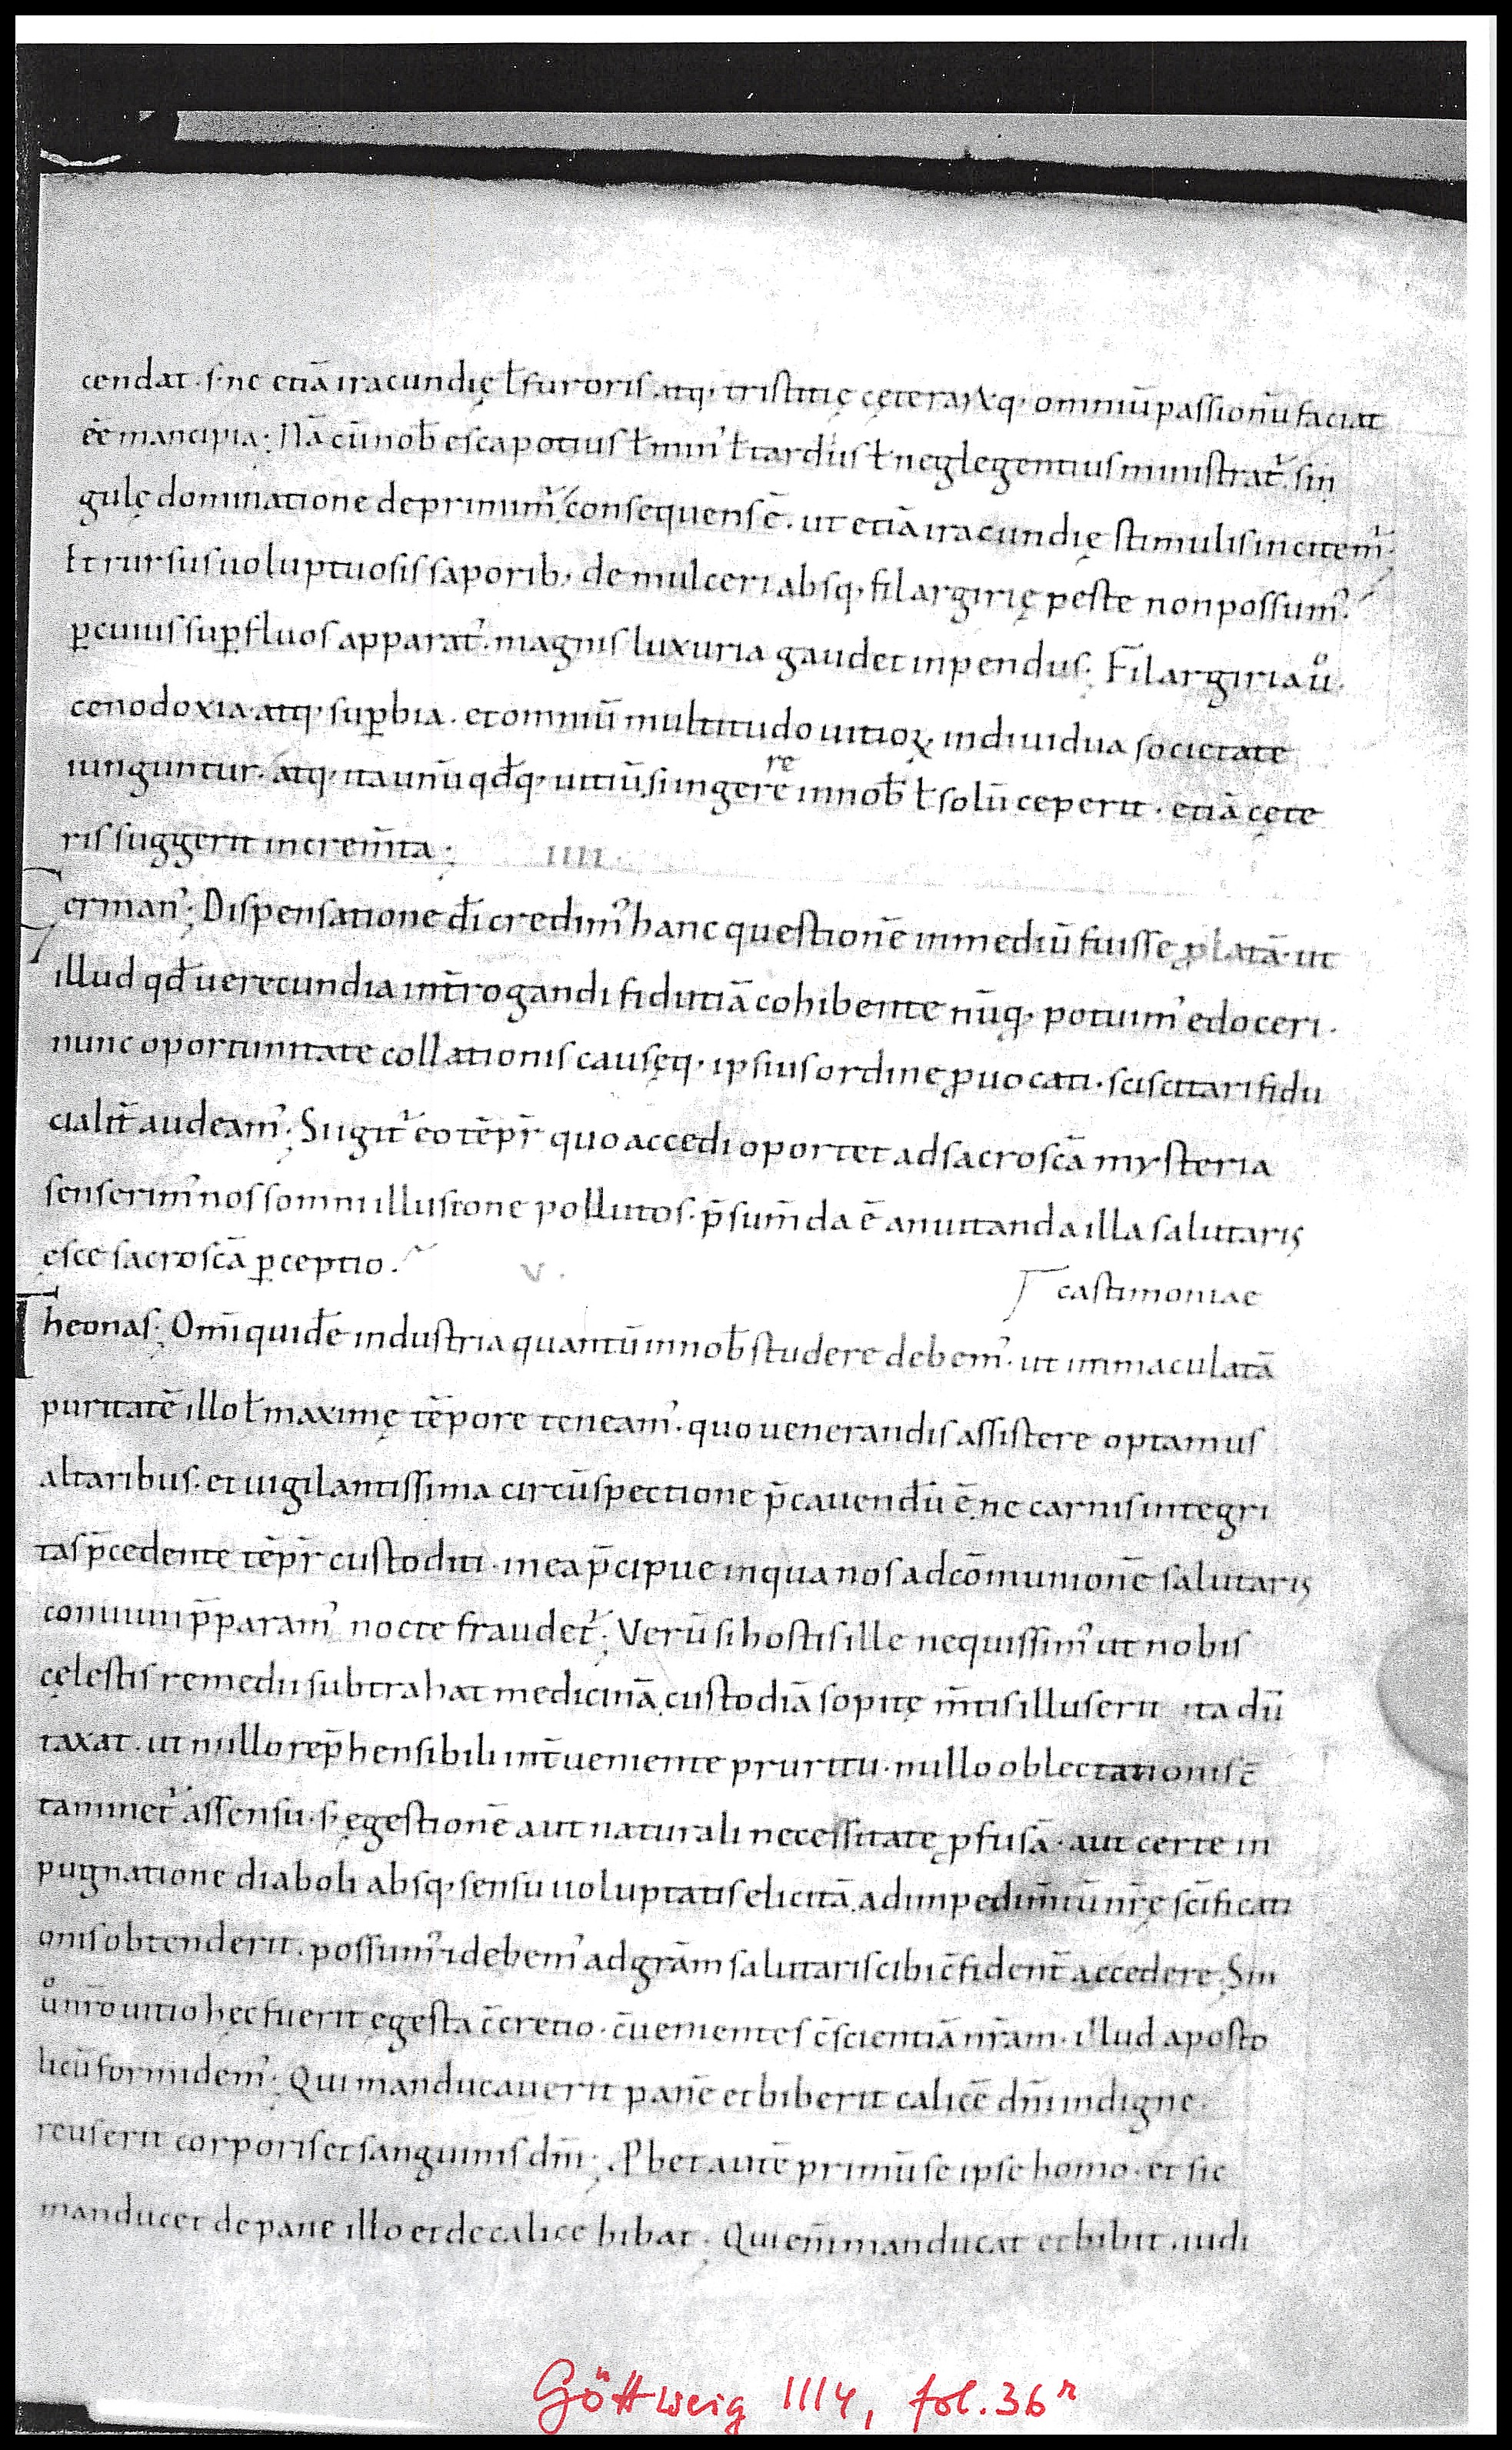 cendat. s; nc etiā iracundię ł furoris atq; tristitię cęterarūq; omniū passionū faciat
ēē mancipia; Nā cū nob̄ esca potius ł min᾿ ł tardius ł neglegentius ministrat᷒. sin
gulę dominatione deprimim᷒ consequens ē. ut etiā iracundię stimulis incitem᷒.
Et rursus uoluptuosis saporib; demulceri absq; filargirię peste non possum᾿.
ꝑ cuius suꝑfluos apparat᾿. magnis luxuria gaudet inpendiis; Filargiria ů.
cenodoxia atq; suꝑbia. et omniū multitudo uitioꝝ. indiuidua societate
iunguntur. atq; ita unū qđq; uitiū si ingerē innob̄ ł solū ceperit. etiā cęte
re
ris suggerit increm̄ta; IIII.
German᾿; Dispensatione dī credim᾿ hanc questionē in mediū fuisse ꝓlatā. ut
illud qđ uerecundia int̄rogandi fidutiā cohibente nūq; potuim᾿ edoceri.
nunc oportunitate collationis causęq; ipsius ordine ꝓuocati. sciscitari fidu
cialit̄ audeam᾿; Si igit᷒ eo tēpr̄ quo accedi oportet ad sacroscā mysteria
senserim᾿ nos somni illusione pollutos. p̄sum̄da ē an uitanda illa salutaris
escę sacroscā ꝑceptio. V.
castimoniae
Theonas; Om̄i quidē industria quantū in nob̄ studere debem᾿. ut immaculatā
puritatē illo ł maximę tēpore teneam᾿. quo uenerandis assistere optamus
altaribus. et uigilantissima circūspectione p̄cauendū ē. ne carnis integri
tas p̄cedente tēpr̄ custodita. in ea p̄cipue in qua nos ad cōmunionē salutaris
conuiuii p̄param᾿ nocte fraudet᷒; Verū si hostis ille nequissim᾿ ut nobis
cęlestis remedii subtrahat medicinā. custodiā sopitę m̄tis illuserit ita dū
taxat. ut nullo rep̄hensibili int̄ueniente pruritu. nullo oblectationis c̄
taminet᷒ assensu. s; egestionē aut naturali necessitate ꝓfusā. aut certe in
pugnatione diaboli absq; sensu uoluptatis elicitā. ad impedim̄tū nr̄ę sc̄ificati
onis obtenderit. possum᾿ & debem᾿ ad grām salutaris cibi c̄fident̄ accedere; Sin
ů nr̄o uitio hęc fuerit egesta c̄cretio. c̄uenientes c̄scientiā nr̄am. illud aposto
licū formidem᾿; Qui manducauerit panē et biberit calicē dn̄i indigne.
reus erit corporis et sanguinis dn̄i; Ꝓbet autē primū se ipse homo. et sic
manducet de pane illo et de calice bibat; Qui eni̅ manducat et bibit. iudi
Göttweig 1114, fol. 36r